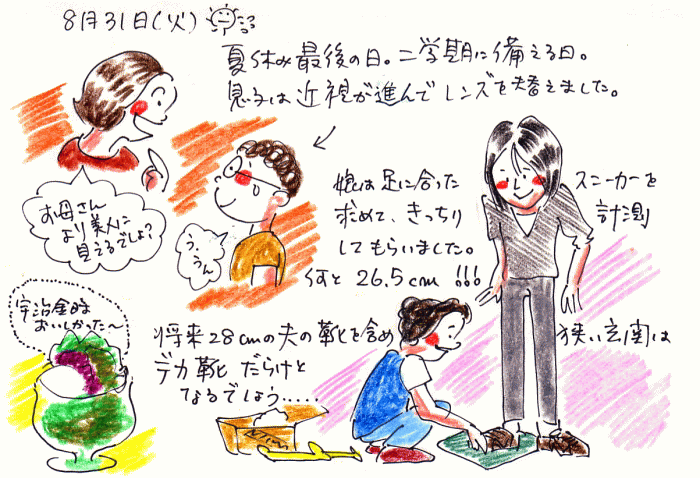 8月31日(火)
夏休み最後の日。二学期に備える日。
息子は近視が進んでレンズを替えました。
お母さん
より美人に
見えるでしょ?
う、
うん
娘は足に合った
スニーカーを
求めて、きっちり
計測
してもらいました。
何と 26.5cm !!!
宇治金時
おいしかった〜
将来28cmの夫の靴を含め
狭い玄関は
デカ靴だらけと
なるでしょう.....